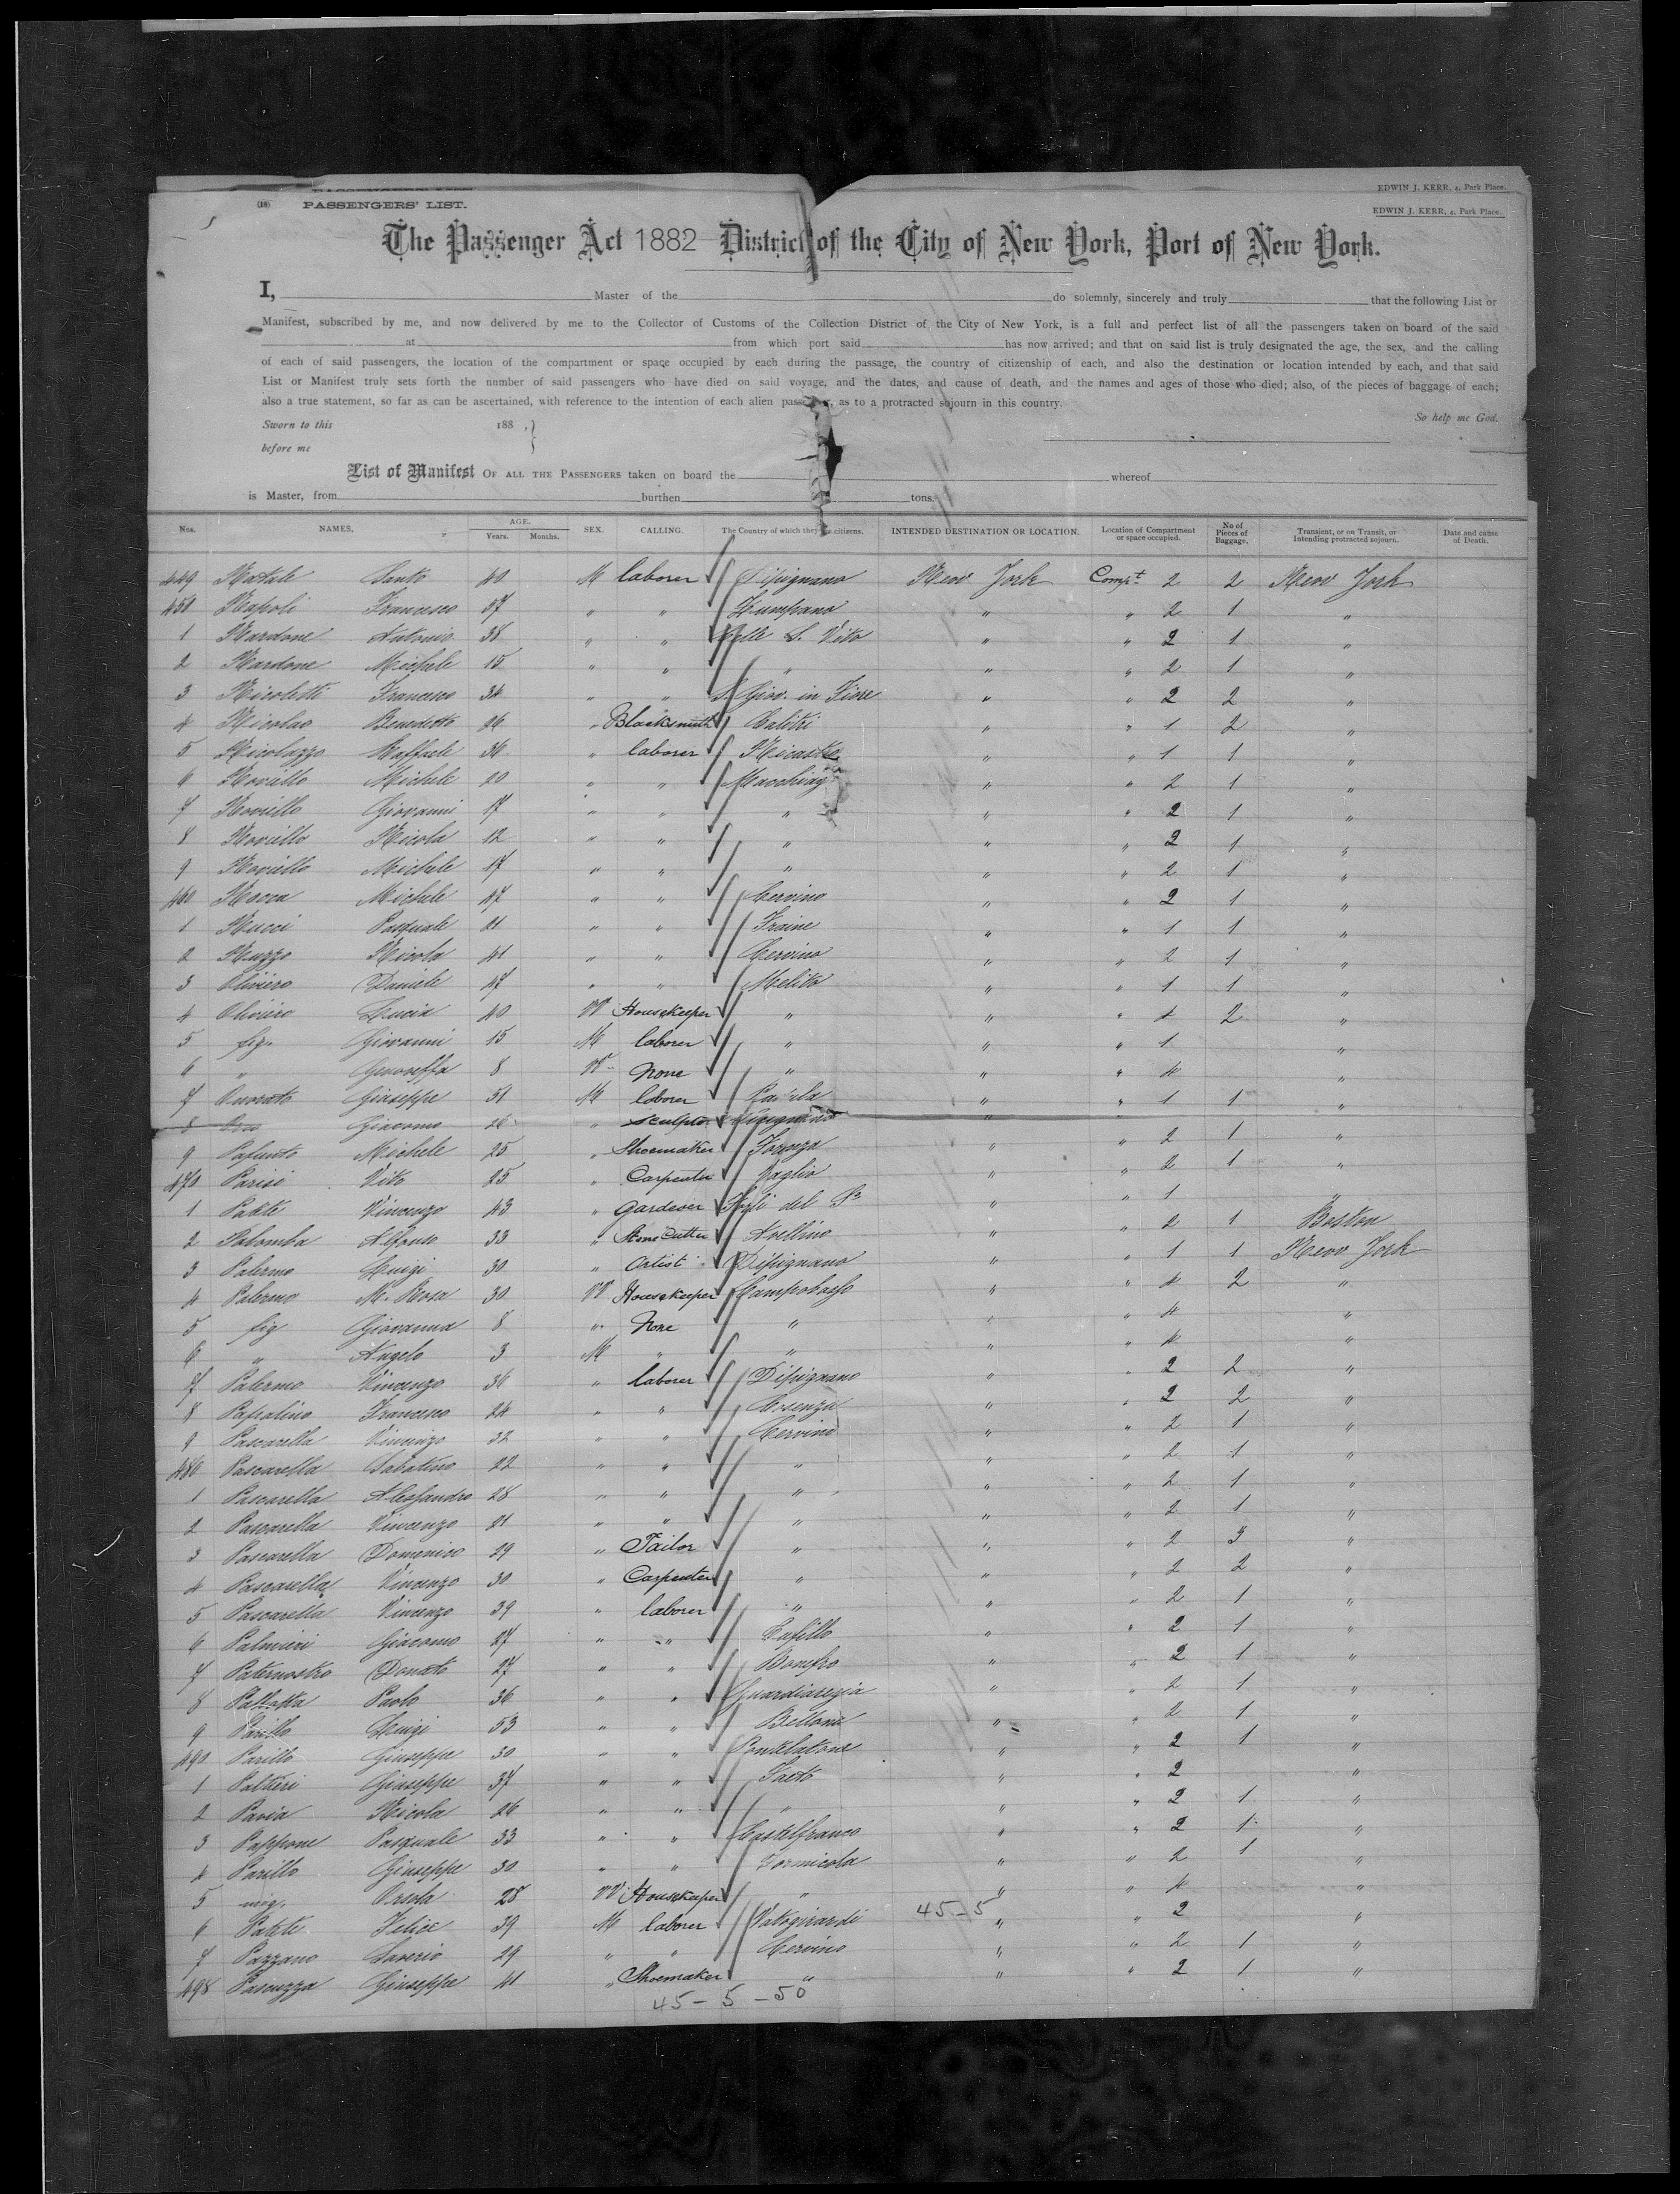 EDWIN J. KERR, 4, Park Place.
(18) PASSENGERS' LIST. EDWIN J. KERR, 4, Park Place.
The Passenger Act 1882 District of the City of New York, Port of New York.
I, Master of the do solemnly, sincerely and truly that the following List or
Manifest, subscribed by me, and now delivered by me to the Collector of Customs of the Collection District of the City of New York, is a full and perfect list of all the passengers taken on board of the said
at from which port said has now arrived; and that on said list is truly designated the age, the sex, and the calling
of each of said passengers, the location of the compartment or space occupied by each during the passage, the country of citizenship of each, and also the destination or location intended by each, and that said
List or Manifest truly sets forth the number of said passengers who have died on said voyage, and the dates, and cause of death, and the names and ages of those who died; also, of the pieces of baggage of each;
also a true statement, so far as can be ascertained, with reference to the intention of each alien passenger, as to a protracted sojourn in this country.
Sworn to this 188 , } So help me God.
before me
List of Manifest OF ALL THE PASSENGERS taken on board the whereof
is Master, from burthen tons.
Nos. NAMES. AGE. Years. Months. SEX. CALLING. The Country of which they are citizens. INTENDED DESTINATION OR LOCATION. Location of Compartment or space occupied. No of Pieces of Baggage. Transient, or on Transit, or Intending protracted sojourn. Date and cause of Death.
449 Natale Santo 40 M laborer Dipignano New York Compt 2 2 New York
450 Napoli Francesco 37 " " Zumpano " " 2 1 "
1 Nardone Antonio 38 " " Colle S. Vito " " 2 1 "
2 Nardone Michele 15 " " " " " 2 1 "
3 Nicoletti Francesco 34 " " S. Giov. in Fiore " " 2 2 "
4 Nicolao Benedetto 26 " Blacksmith Calitri " " 1 2 "
5 Nicolazzo Raffaele 36 " laborer Nicastro " " 1 1 "
6 Noviello Michele 20 " " Macchiag " " 2 1 "
7 Noviello Giovanni 17 " " " " " 2 1 "
8 Noviello Nicola 12 " " " " " 2 1 "
9 Noviello Michele 17 " " " " " 2 1 "
460 Michele 47 " " Cervino " " 2 1 "
1 Nucci Pasquale 21 " " Fraine " " 1 1 "
2 Nuzzo Nicola 41 " " Cervino " " 2 1 "
3 Oliviero Daniele 47 " " Melito " " 1 1 "
4 Oliviero Lucia 40 W Housekeeper " " " 4 2 "
5 fig. Giovanni 15 M laborer " " " 1 "
6 " Giuseffa 8 W None " " " 4 "
7 Onorato Giuseppe 51 M laborer Paola " " 1 1 "
8 Giacomo 26 " Sculptor "
9 Michele 25 " Shoemaker Forenza " " 2 1 "
470 Parisi Vito 25 " Carpenter Vaglio " " 2 1 "
1 Vincenzo 43 " Gardener del " " 1 "
2 Palomba Alfonso 33 " Stone Cutter Avellino " " 2 1 Boston
3 Palermo Luigi 30 " Artist Dipignano " " 1 1 New York
4 Palermo M. Rosa 30 W Housekeeper Campobasso " " 4 2 "
5 fig Giovanna 8 " None " " " 4 "
6 " Angelo 3 M " " " " 4 "
7 Palermo Vincenzo 36 " laborer Dipignano " " 2 2 "
8 Francesco 24 " " Cosenza " " 2 2 "
9 Pascarella Vincenzo 32 " " Cervino " " 2 1 "
480 Pascarella Sabatino 22 " " " " " 2 1 "
1 Pascarella Alessandro 28 " " " " " 2 1 "
2 Pascarella Vincenzo 21 " " " " " 2 1 "
3 Pascarella Domenico 29 " Tailor " " " 2 3 "
4 Pascarella Vincenzo 30 " Carpenter " " " 2 2 "
5 Pascarella Vincenzo 39 " laborer " " " 2 1 "
6 Palmieri Giacomo 27 " " " " 2 1 "
7 Paternostro Donato 27 " " Bonefro " " 2 1 "
8 Pallotta Paolo 36 " " Guardiaregia " " 2 1 "
9 Parillo Luigi 53 " " Bellona " " 2 1 "
490 Parillo Giuseppe 30 " " Pontelatone " " 2 1 "
1 Giuseppe 37 " " Faeto " " 2 "
2 Pavia Nicola 26 " " " " " 2 1 "
3 Pappone Pasquale 33 " " Castelfranco " " 2 1 "
4 Parillo Giuseppe 30 " " Formicola " " 2 1 "
5 mog. Orsola 28 W Housekeeper " " " 4 "
6 Felice 39 M laborer 45-5 " " 2 "
7 Pazzano Saverio 29 " " Cervino " " 2 1 "
498 Pascuzza Giuseppe 41 " Shoemaker " " " 2 1 "
45-5-50